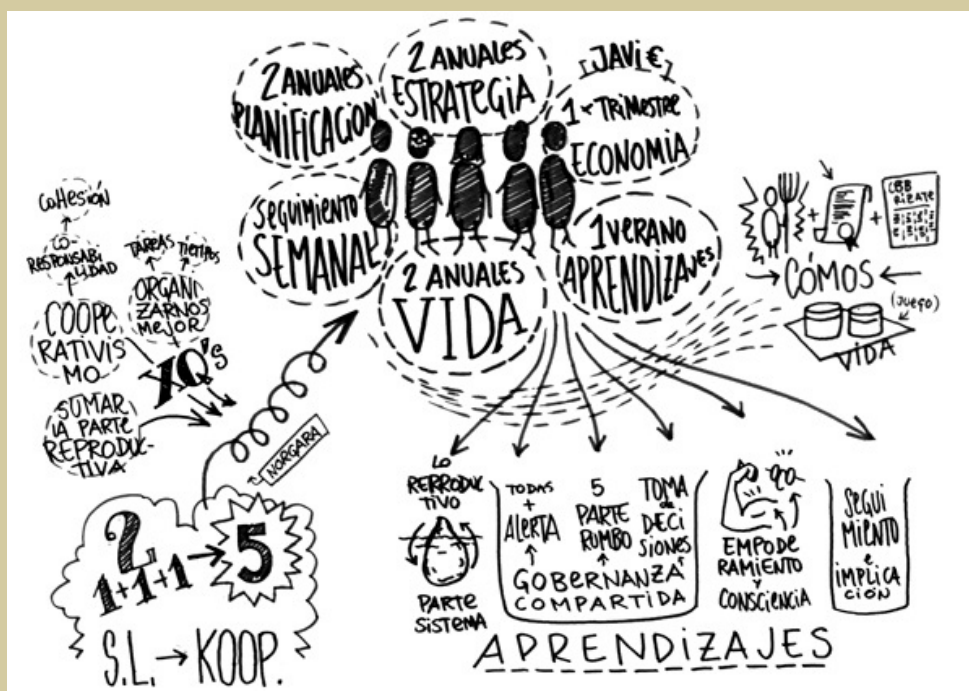 2 ANUALES
PLANIFICACIÓN
2 ANUALES
ESTRATEGIA
JAVI €
1 x TRIMESTRE
ECONOMIA
SEGUIMIENTO
SEMANAL
2 ANUALES
VIDA
1 VERANO
APRENDIZAJES
COHESIÓN
CO-
RESPONSABI
LIDAD
COOPE
RATIVIS
MO
TAREAS
TIEMPOS
ORGANI
ZARNOS
MEJOR
SUMAR
LA PARTE
REPRODUC-
TIVA
XQ's
NORGARA
2
1+1+1→5
S.L.→KOOP.
+
+
CÓMOS
(JUEGO)
VIDA
LO
REPRODUC
TIVO
PARTE
SISTEMA
TODAS
+
ALERTA
5
PARTE
RUMBO
TOMA
de DECI
SIONES
GOBERNANZA
COMPARTIDA
EMPODE
RAMIENTO
Y
CONSCIENCIA
SEGUI
MIENTO
e
IMPLICA
CIÓN
APRENDIZAJES